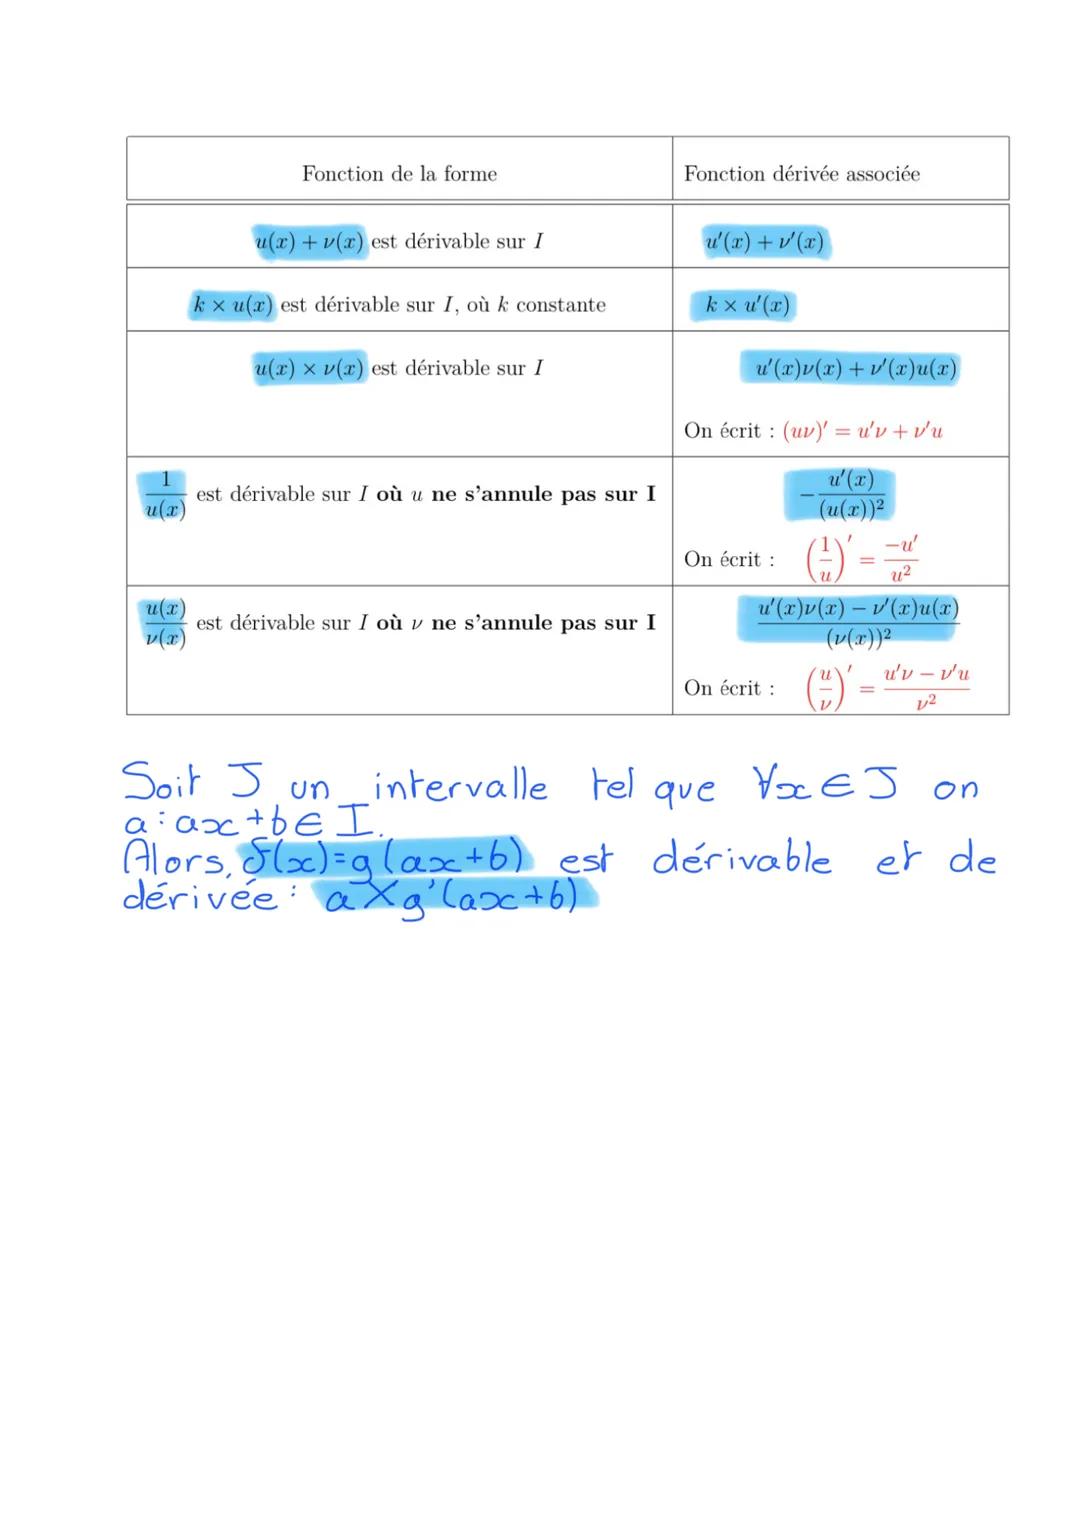 Fonction de la forme | Fonction dérivée associée
u(x) + ν(x) est dérivable sur I | u′(x) + ν′(x)
k × u(x) est dérivable sur I, où k constante | k × u′(x)
u(x) × ν(x) est dérivable sur I | u′(x)ν(x) + ν′(x)u(x)
On écrit : (uν)′ = u′ν + ν′u
1/u(x) est dérivable sur I où u ne s'annule pas sur I | −u′(x)/(u(x))²
On écrit : (1/u)′ = −u′/u²
u(x)/ν(x) est dérivable sur I où ν ne s'annule pas sur I | (u′(x)ν(x) − ν′(x)u(x))/(ν(x))²
On écrit : (u/ν)′ = (u′ν − ν′u)/ν²
Soit J un intervalle tel que ∀x ∈ J on
a : ax+b ∈ I.
Alors, f(x)=g(ax+b) est dérivable et de
dérivée : a×g'(ax+b)